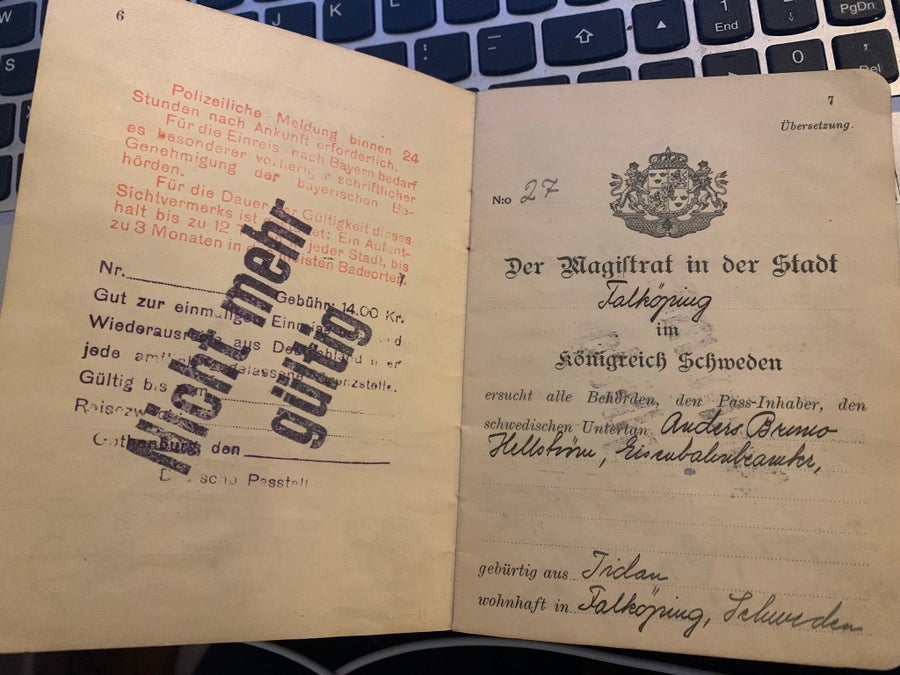 6
Polizeiliche Meldung binnen 24
Stunden nach Ankunft erforderlich.
Für die Einreis nach Bayern bedarf
es besonderer vorherig r schriftlicher
Genehmigung der bayerischen Be-
hörden.
Für die Dauer der Gültigkeit dieses
Sichtvermerks ist : Ein Aufent-
halt bis zu 12 jeder Stadt, bis
zu 3 Monaten in d meisten Badeorten.
Nr. Gebühr: 14.00 Kr.
Gut zur einmaligen Einreise und
Wiederausreise aus Deutschland über
jede amtlich zugelassene Grenzstelle.
Gültig bis zum
Reisezweck
Gothenburg den
D sche Passtell
Nicht mehr
gültig
7
Übersetzung.
N:o 27
Der Magistrat in der Stadt
Falköping
im
Königreich Schweden
ersucht alle Behörden, den Pass-Inhaber, den
schwedischen Untertan Anders Bruno
Hellström, Eisenbahnbeamter,
gebürtig aus Tidan
wohnhaft in Falköping, Schweden
W
S
J
K
L
:
;
1
End
0
PgDn
Del